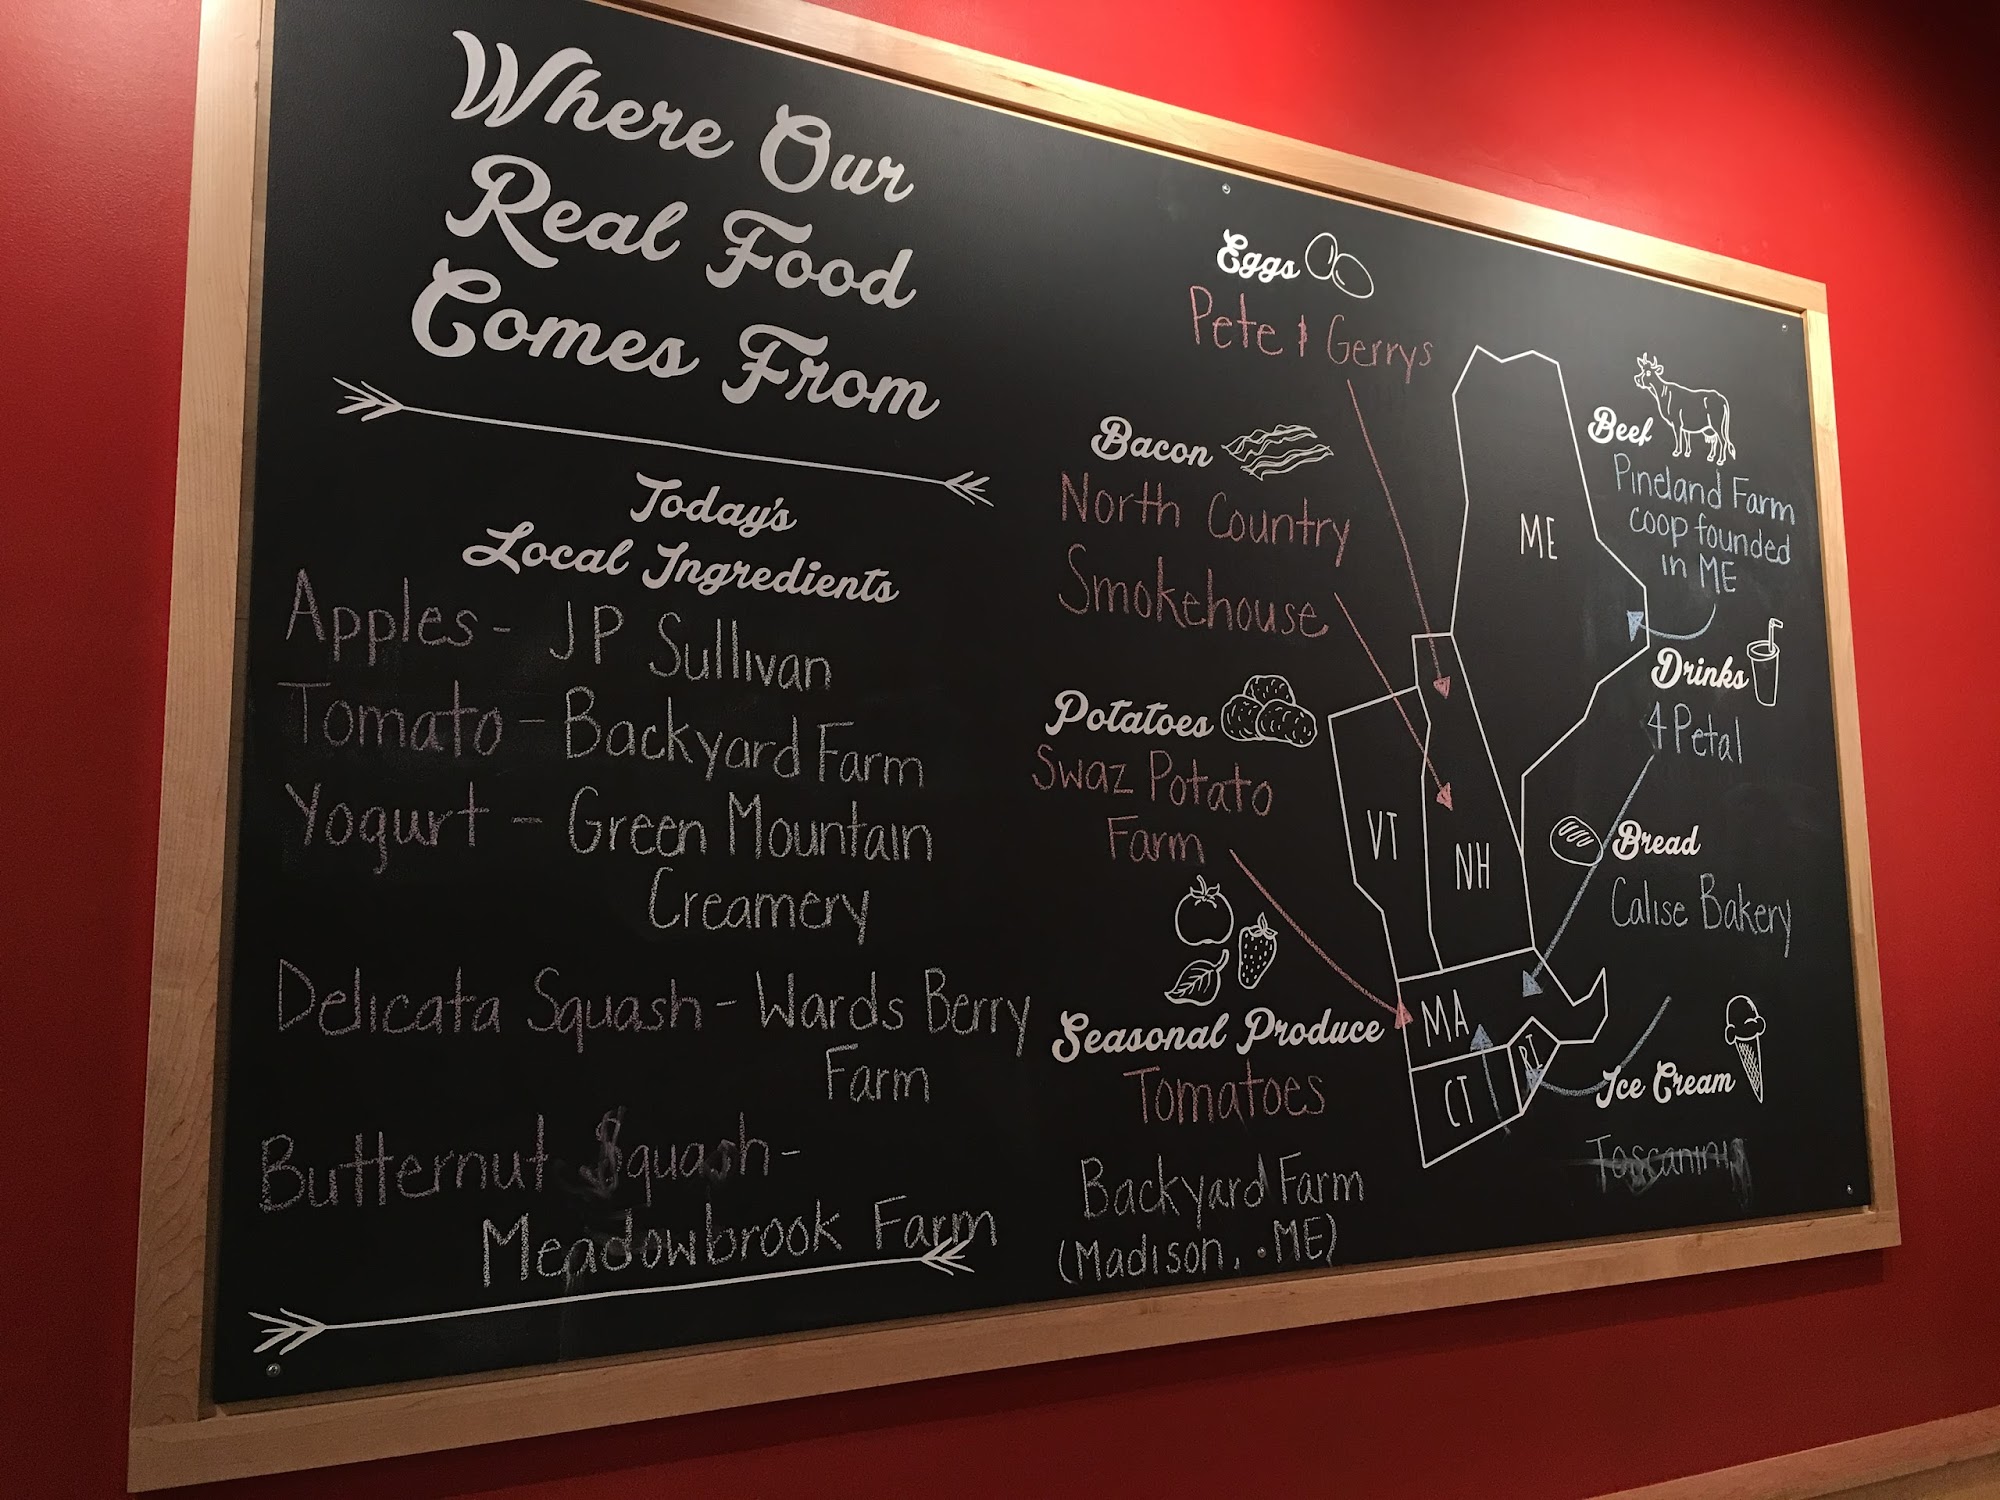 Where Our
Real Food
Comes From
Today's
Local Ingredients
Apples - JP Sullivan
Tomato - Backyard Farm
Yogurt - Green Mountain
Creamery
Delicata Squash - Wards Berry
Farm
Butternut Squash -
Meadowbrook Farm
Eggs
Pete & Gerrys
Bacon
North Country
Smokehouse
Potatoes
Swaz Potato
Farm
Seasonal Produce
Tomatoes
Backyard Farm
(Madison, ME)
ME
VT
NH
MA
CT
RI
Beef
Pineland Farm
coop founded
in ME
Drinks
4 Petal
Bread
Calise Bakery
Ice Cream